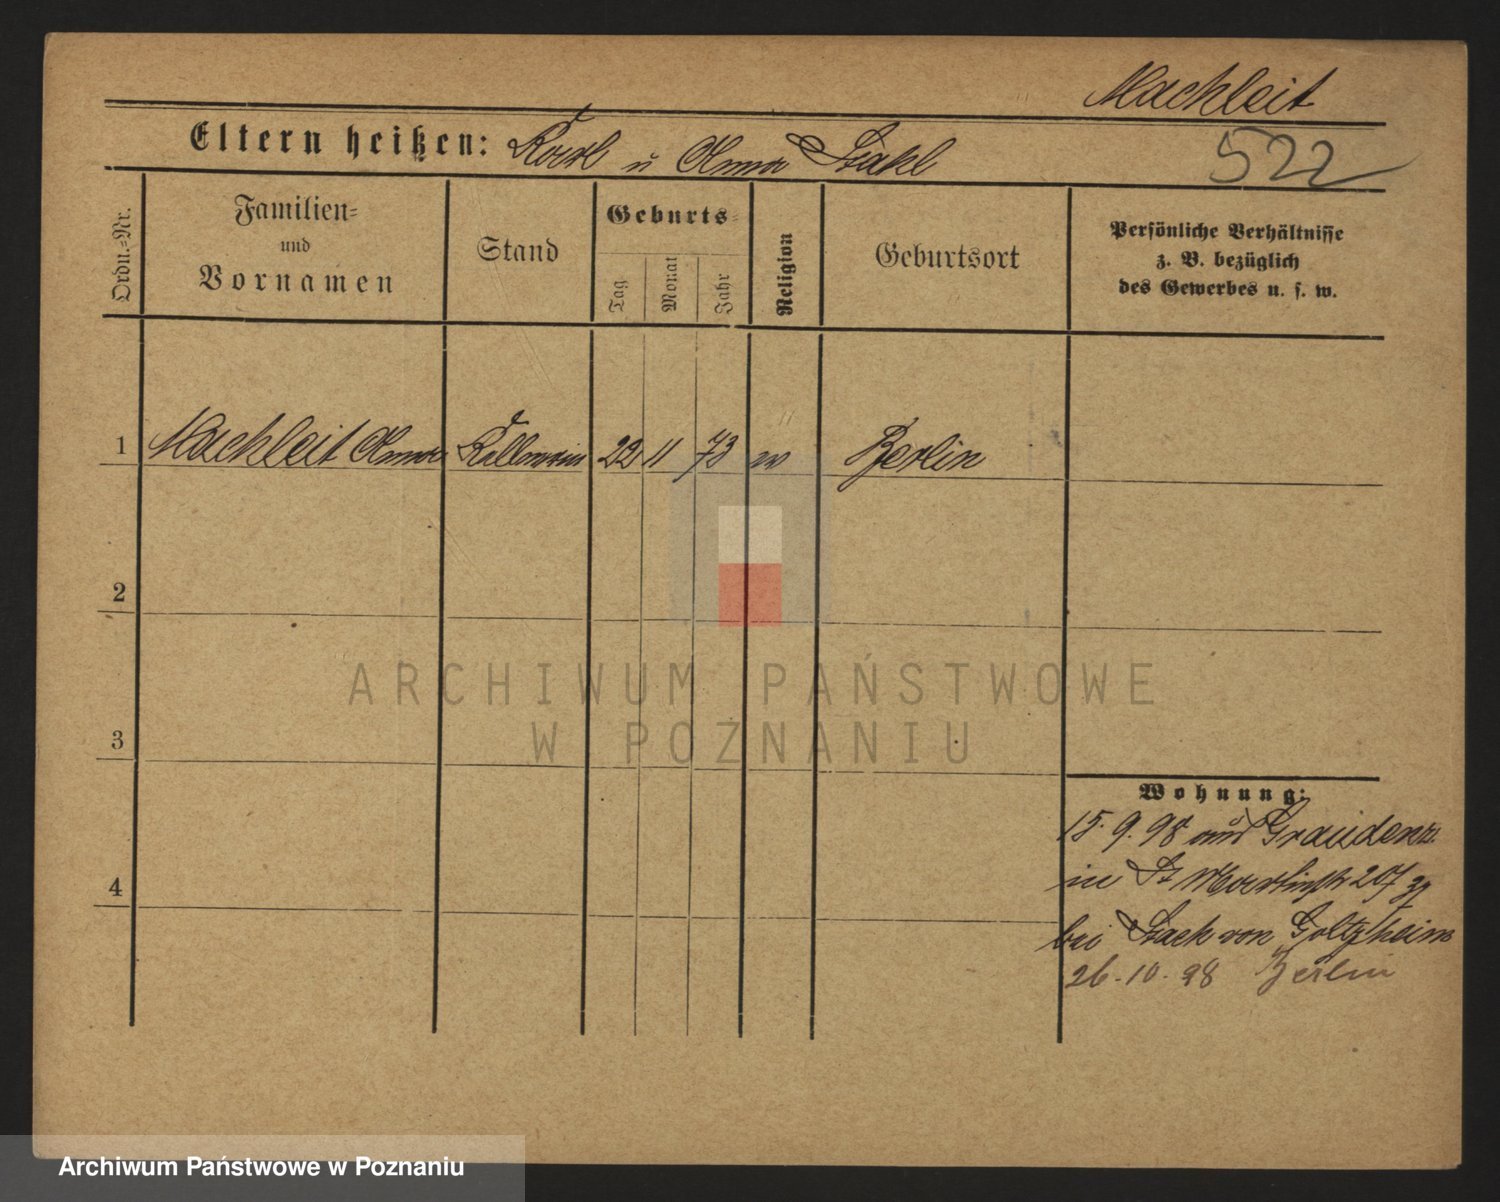 Machleit
Eltern heißen: Karl u Anna Stahl
522
Ordn.-Nr.
Familien-
und
Vornamen
Stand
Geburts-
Tag
Monat
Jahr
Religion
Geburtsort
Persönliche Verhältnisse
z. B. bezüglich
des Gewerbes u. s. w.
1 Machleit Anna Kellnerin 22 11 73 Berlin
2
3
4
Wohnung:
15. 9. 98 aus Graudenz
in St Martinstr
bei von
26. 10. 98 Berlin
ARCHIWUM PAŃSTWOWE
W POZNANIU
Archiwum Państwowe w Poznaniu